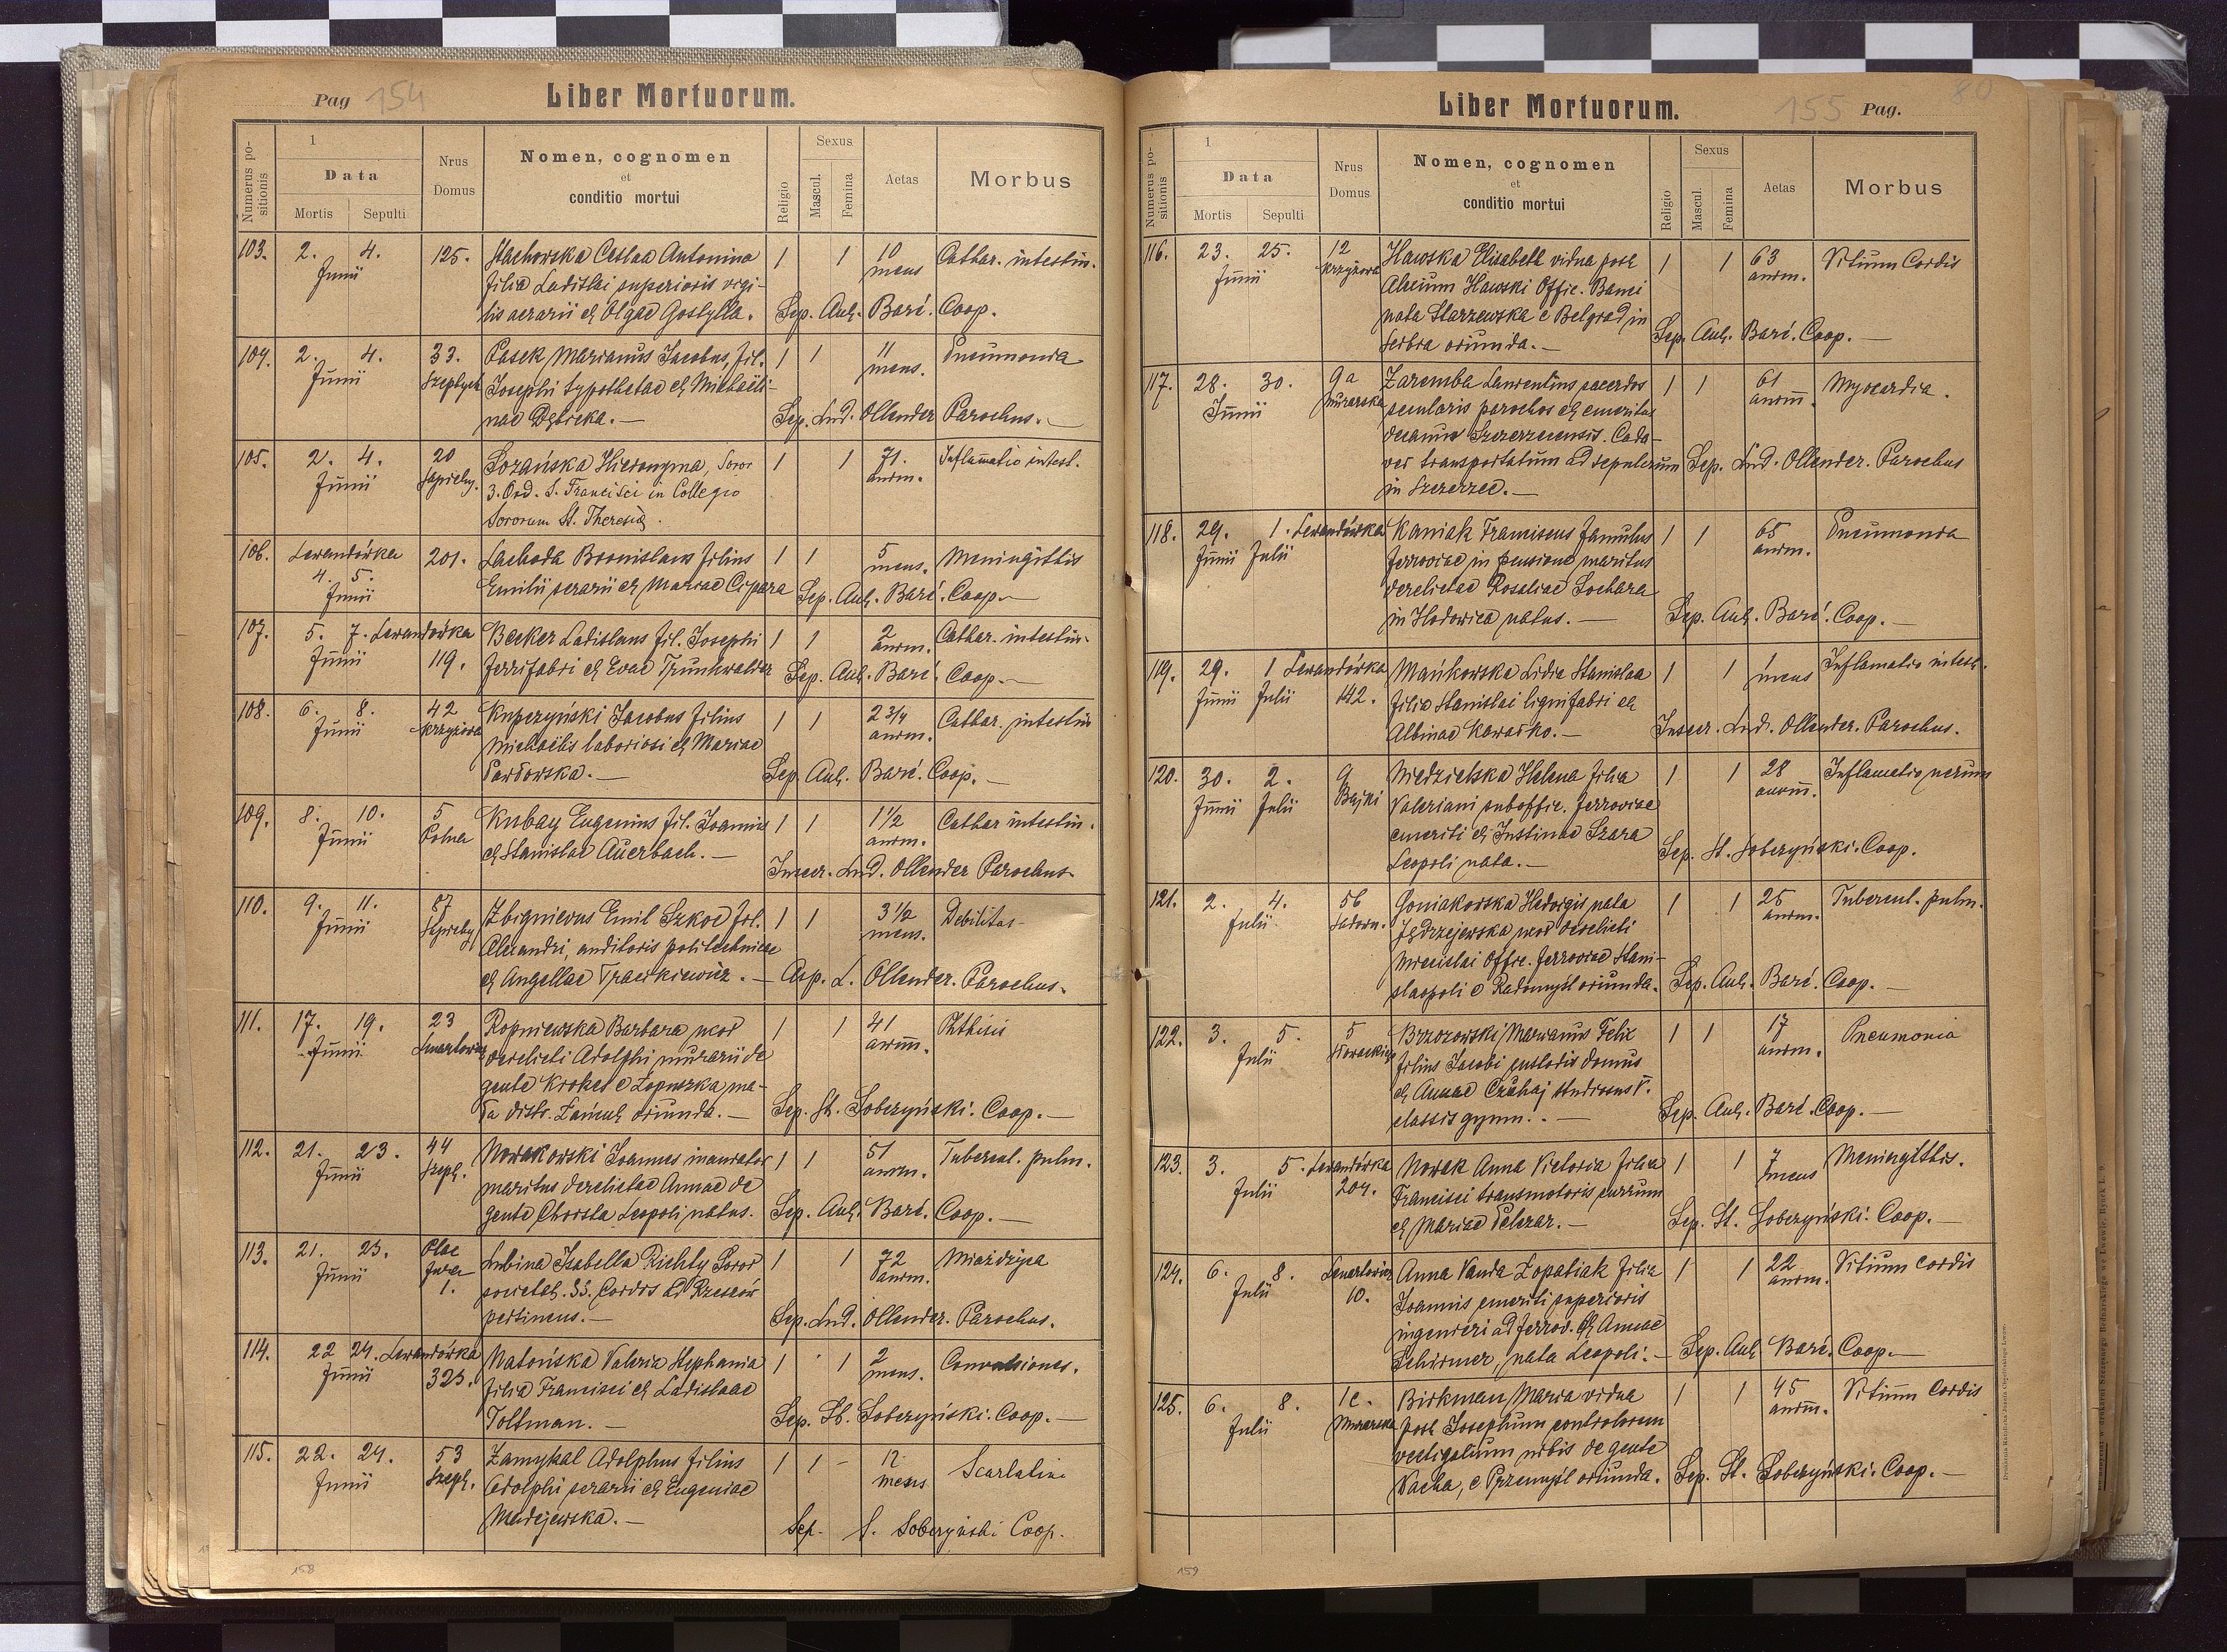 Pag 154 Liber Mortuorum.
Numerus positionis 1 Data Mortis Sepulti Nrus Domus Nomen, cognomen et conditio mortui Religio Sexus Mascul. Femina Aetas Morbus
103. 2. 4. 125. Stachowska Ceslaa Antonina 1 1 10 Cathar. intestin.
Junii filia Ladislai superioris vigi- mens
lis aerarii et Olgae Gostylla. Sep. Ant. Barć. Coop.
104. 2. 4. 33. Pasek Marianus Jacobus, fil. 1 1 11 Pneumonia
Junii Szeptyck Josephi typothetae et Michaëli- mens.
nae Dębicka. — Sep. Lud. Ollender Parochus. —
105. 2. 4. 20 Łozańska Hieronyma, Soror 1 1 71. Inflamatio intest.
Junii Sapiehy. 3. Ord. S. Francisci in Collegio annor.
Sororum St. Theresią.
106. Lewandówka 201. Lachoda Bronislaus filius 1 1 5 Meningitis
4. 5. Emilii serarii et Mariae Cipara mens. Sep. Ant. Barć. Coop. —
Junii
107. 5. 7. Lewandówka Becker Ladislaus fil. Josephi 1 1 2 Cathar. intestin.
Junii 119. ferrifabri et Evae Trunkwalder annor. Sep. Ant. Barć. Coop. —
108. 6. 8. 42 Kupczyński Jacobus filius 1 1 2 3/4 Cathar. intestin
Junii Krzyżowa Michaëlis laboriosi et Mariae annor.
Pawłowska. — Sep. Ant. Barć. Coop. —
109. 8. 10. 5 Kubay Eugenius fil. Joannis 1 1 1 1/2 Cathar intestin.
Junii Polna et Stanislae Auerbach. — annor.
Inscr. Lud. Ollender Parochus.
110. 9. 11. 87 Zbignievus Emil Szkoc fil. 1 1 3 1/2 Debilitas
Junii Sapiehy Alexandri, auditoris politechnicae mens.
et Angellae Traczkiewicz. — Asp. L. Ollender. Parochus.
111. 17. 19. 23 Ropniewska Barbara uxor 1 1 41 Phthisis
Junii Lenartowicz derelicti Adolphi murarii de annor.
gente Krokos e Łopuszka ma-
ła distr. Łańcut oriunda. — Sep. St. Sobczyński. Coop. —
112. 21. 23. 44 Nowakowski Joannes inaurator 1 1 51 Tubercul. pulm.
Junii Szept. maritus derelictae Annae de annor.
gente Chrosta Leopoli natus. Sep. Ant. Barć. Coop. —
113. 21. 23. Plac Lubina Isabella Richty Soror 1 1 72 Miażdżyca
Junii Jura 1. societat. SS. Cordis ad Rzeszów annor.
pertinens. — Sep. Lud. Ollender. Parochus.
114. 22 24. Lewandówka Matońska Valeria Stephania 1 1 2 Convulsiones.
Junii 323. filia Francisci et Ladislaae mens.
Toltman. — Sep. St. Sobczyński. Coop. —
115. 22. 24. 53 Zamykal Adolphus filius 1 1 - 12 Scarlatina
Junii Szept. Adolphi serarii et Eugeniae mens
Madejewska. — Sep. S. Sobczyński Coop.
158
Liber Mortuorum. 155 Pag. 80
Numerus positionis 1 Data Mortis Sepulti Nrus Domus Nomen, cognomen et conditio mortui Religio Sexus Mascul. Femina Aetas Morbus
116. 23. 25. 12 Hawska Elisabeth vidua post 1 1 63 Vitium Cordis
Junii Krzyżowa Alexium Hawski Offic. Banci annor.
nata Starzewska e Belgrad in
Serbia oriunda. — Sep. Ant. Barć. Coop. —
117. 28. 30. 9a Zaremba Laurentius sacerdos 1 1 61 Myocardia.
Junii Murarska secularis parochos et emeritus annor.
decanus Szczerzecensis. Cada-
ver transportatum ad sepulcrum Sep. Lud. Ollender. Parochus
in Szczerzec. —
118. 29. 1. Lewandówka Kaniak Franciscus famulus 1 1 65 Pneumonia
Junii Julii ferroviae in pensione maritus annor.
derelictae Rosaliae Sochara
in Hodowica natus. — Sep. Ant. Barć. Coop. —
119. 29. 1 Lewandówka Mańkowska Lidia Stanislaa 1 1 1 Inflamatio intest.
Junii Julii 142. filia Stanislai lignifabri et mens
Albinae Kawałko. — Inscr. Lud. Ollender. Parochus.
120. 30. 2. 9 Niedzielska Helena filia 1 1 28 Inflamatio renum
Junii Julii Bajki Valeriani suboffic. ferroviae annor.
emeriti et Justinae Szara
Leopoli nata. — Sep. St. Sobczyński. Coop.
121. 2. 4. 56 Goniakowska Hedvigis nata 1 1 25 Tubercul. pulm.
Julii Sadown. Jędrzejewska uxor derelicti annor.
Miecislai Offic. ferroviae Stani-
slaopoli e Radomyśl oriunda. Sep. Ant. Barć. Coop. —
122. 3. 5. 5 Brzozowski Marianus Felix 1 1 17 Pneumonia
Julii filius Jacobi custodis domus annor.
et Annae Czuhaj studiosus V.
classis gymn. — Sep. Ant. Barć. Coop. —
123. 3. 5. Lewandówka Nowak Anna Victoria filia 1 1 7 Meningitis.
Julii 204. Francisci transmotoris currum mens
et Mariae Pelczar. — Sep. St. Sobczyński. Coop. —
124. 6. 8. Lenartowicz Anna Vanda Łopatiak filia 1 1 22 Vitium cordis
Julii 10. Joannis emeriti superioris annor.
ingenieri ad ferrov. et Annae
Schirmer, nata Leopoli. — Sep. Ant. Barć. Coop. —
125. 6. 8. 1c. Birkman Maria vidua 1 1 45 Vitium Cordis
Julii Murarska post Josephum controlorem annor.
vectigalium urbis de gente
Vacha, e Przemyśl oriunda. Sep. St. Sobczyński. Coop. —
159